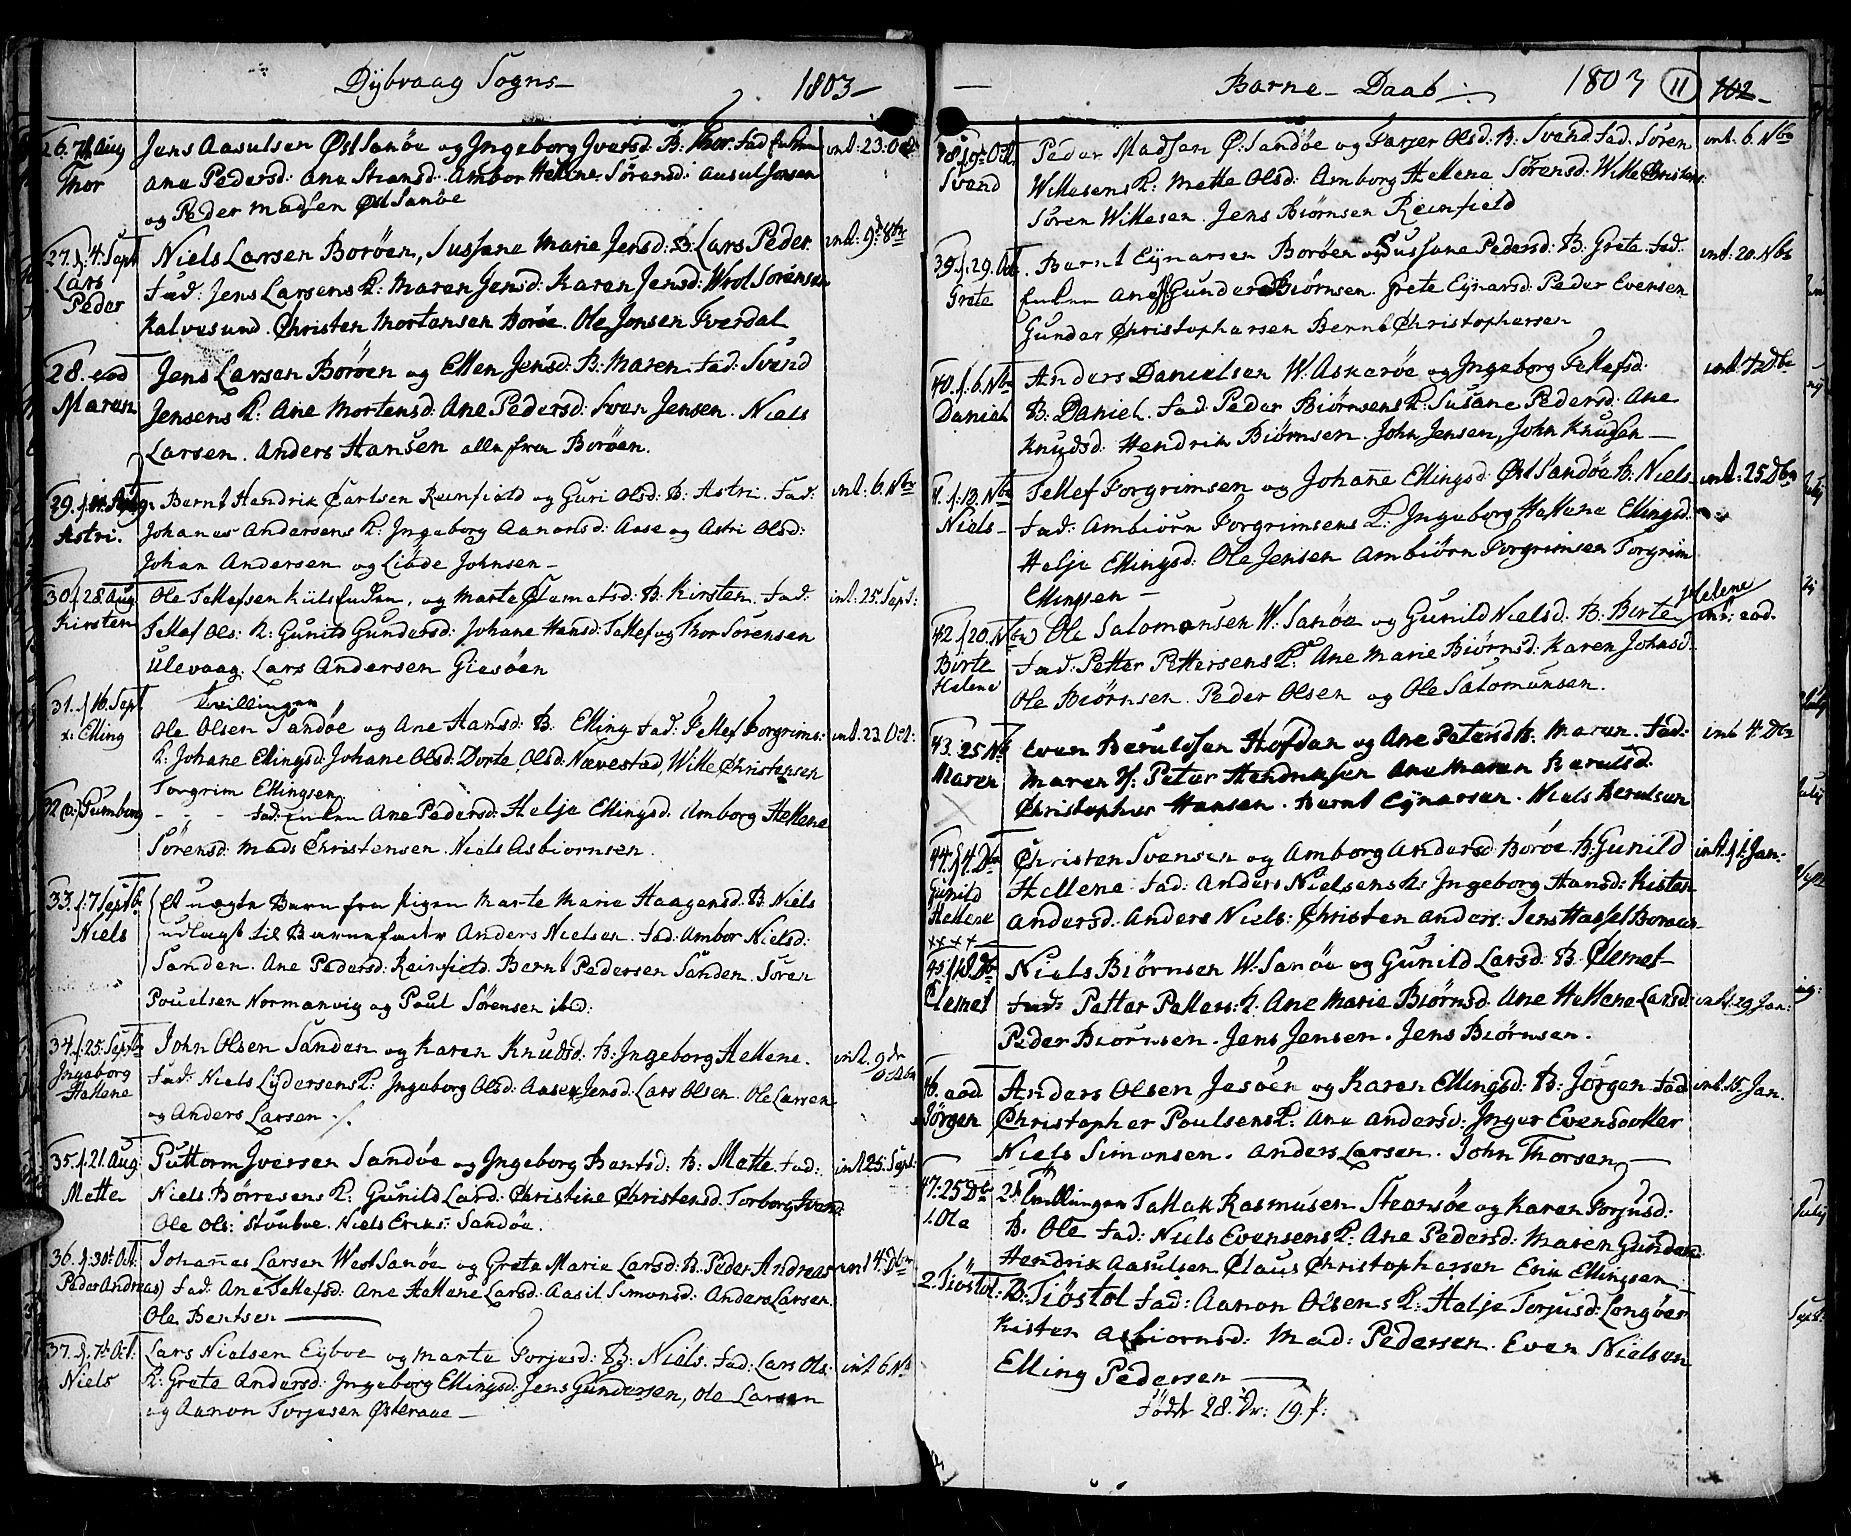 Dybvaag Sogns 1803
26. Aug Jens Aasulsen Øst Sanøe og Ingeborg Iversd: B: Thor. Fad
Thor Ane Pedersd: Ane Stiansd: Ambor Hellene Sørensd: Aasul Jonsen
og Peder Madsen Øst Sanøe
int: 23. Oct
27. f. 4. Sept Niels Larsen Borøen, Susane Marie Jensd: B: Lars Peder
Lars Peder Fad: Jens Larsens K: Maren Jensd: Karen Jensd: Wrol Sørensen
Kalvesund. Christen Mortensen Borøe. Ole Jonsen Fverdal
int: 9d 8br
28. eod Jens Larsen Borøen og Ellen Jensd: B: Maren. Fad: Svend
Maren Jensens K: Ane Mortensd: Ane Pedersd: Iver Jensen. Niels
Larsen. Anders Hansen alle fra Borøen.
29. f. Bernt Hendrik Carlsen Reinfield og Guri Olsd: B: Astri. Fad:
Astri. Johanes Andersens K: Ingeborg Aanonsd: Aase og Astri Olsd:
Johan Andersen og Liøde Johnsen
int: 6. Nbr
30. f. 28. Aug Ole Tellefsen og Marte Clemetsd: B: Kirsten. Fad:
Kirsten Tellef Ols: K: Gunild Gundersd: Johane Hansd: Tellef og Thor Sørensen
Ulevaag. Lars Andersen Giesøen
int: 25. Sept:
31. f 16. Sept Tvillinger
1: Elling Ole Olsen Sandøe og Ane Hansd: B: Elling Fad: Tellef Torgrims:
K: Johane Ellingsd: Johane Olsd: Dorte Olsd: Nævestad, Wille Christensen
Torgrim Ellingsen
int. 23. Oct:
Gumborg - - - Fad: Ane Pedersd: Helje Ellingsd: Amborg Hellene
Sørensd: Mads Christensen. Niels Asbiørnsen.
33. f. 7 Septbr Et uægte Barn fra Pigen Marte Marie Haagensd: B: Niels
Niels udlagt til Barnefader Anders Nielsen. Fad: Ambor Nielsd:
Sanden. Ane Pedersd: Reinfield. Bernt Pedersen Sanden. Søren
Pouelsen Normanvig og Poul Sørensen ibid:
34. f. 25. Septbr John Olsen Sanden og Karen Knudsd: B: Ingeborg Hellene.
Ingeborg Hellene Fad: Niels Lydersens K: Ingeborg Olsd: Jensd: Lars Olsen. Ole Larsen
og Anders Larsen
int. 9de Octbr
35. f. 21. Aug: Guttorm Iversen Sandøe og Ingeborg Bentsd: B: Mette. Fad:
Mette Niels Børresens K: Gunild Larsd: Christine Christensd: Torborg Svend
Ole Ols: Staubue. Niels Eriks: Sandøe.
int 25. Sept:
36. f. 30t Oct. Johanes Larsen West Sanøe og Grete Marie Larsd: B: Peder Andreas
Peder Andreas Fad: Ane Tellefsd: Ane Hellene Larsd: Aasil Simonsd: Anders Larsen.
Ole Bentsen
int 4. Dbr
37. f. 7t Oct: Lars Nielsen Eybve og Marte Torjusd: B: Niels. Fad: Lars Ols:
Niels K: Grete Andersd: Ingeborg Ellingsd: Jens Gundersen, Ole Larsen
og Aanon Torjesen Østeraae
int 6. Nbr
Barne Daab 1803 11 102
38. f. 9t Oct Peder Madsen Ø: Sandøe og Olsd: B: Svend. Fad. Søren
Svend Willesens K: Mette Olsd: Amborg Hellene Sørensd: Wille Christens
Søren Willesen. Jens Biørnsen Reinfield
int. 6. Nbr
39. f. 29. Oct. Bernt Eynarsen Borøen og Susane Pedersd: B: Grete Fad:
Grete Ane Gunders Biørnsen. Grete Eynarsd: Peder Evensen
Gunder Christophersen Bernt Christophersen
int. 20. Nbr
40. f. 6. Nbr Anders Danielsen W. Askerøe og Ingeborg Tellefsd:
Daniel B: Daniel. Fad: Peder Biørnsens K: Susane Pedersd: Ane
Knudsd: Hendrik Biørnsen. John Jensen, John Knudsen
int. 12 Dbr
41. f. 13. Nbr Tellef Torgrimsen og Johane Ellingsd: Øst Sandøe B: Niels.
Niels Fad: Ambiørn Torgrimsens K: Ingeborg Hellene Ellingsd:
Helje Ellingsd: Ole Jensen Ambiørn Torgrimsen Torgrim
Ellingsen
int. 25. Dbr
42. f. 20. Nbr Ole Salomonsen W. Sanøe og Gunild Nielsd. B: Berte Helene
Birte Helene Fad: Petter Pettersens K: Ane Marie Biørnsd: Karen Johnsd:
Ole Biørnsen. Peder Olsen og Ole Salomonsen.
int: eod.
43. 25. Nbr Even Berulfsen Hofdan og Ane Petersd B: Maren. Fad:
Maren Maren H. Peter Hendriksen Ane Maren Berulsd.
Christopher Hansen. Bernt Eynarsen. Niels Berulsen
int 4. Dbr
44. f 4. Dbr Christen Svensen og Amborg Andersd Borøe. B: Gunild
Gunild Hellene Hellene Fad: Anders Nielsens K: Ingeborg Hansd: Kisten
Andersd: Anders Niels: Christen Anders: Jens Hassel Borøen
int. f. 1. Jan:
x x x x
45. f. 18. Dbr Niels Biørnsen W. Sanøe og Gunild Larsd: B: Clemet
Clemet Fad: Petter Petters: K: Ane Marie Biørnsd: Ane Hellene Larsd:
Peder Biørnsen. Jens Jensen. Jens Biørnsen.
int. 29 Jan:
46. eod Anders Olsen Jesøen og Karen Ellingsd: B: Jørgen Fad
Jørgen Christopher Poulsens K: Ane Andersd: Inger Evensdotter
Niels Simonsen. Anders Larsen. John Thorsen
int. 15. Jan.
47: 25 Dbr 2de Tvillinger Tallak Rasmusen Stensøe og Karen Torjusd:
1. Ole B. Ole Fad: Niels Evensens K: Ane Pedersd: Maren Gundersd
Hendrik Aasulsen Claus Christophersen Eric Ellingsen
2. Tiøstol: B: Tiøstol Fad: Aanon Olsens K: Helje Torjusd: Longøen
Kisten Asbiornsd: Mad: Pedersen. Even Nielsen
Elling Pedersen
Fødde 28. Dr: 19. f: